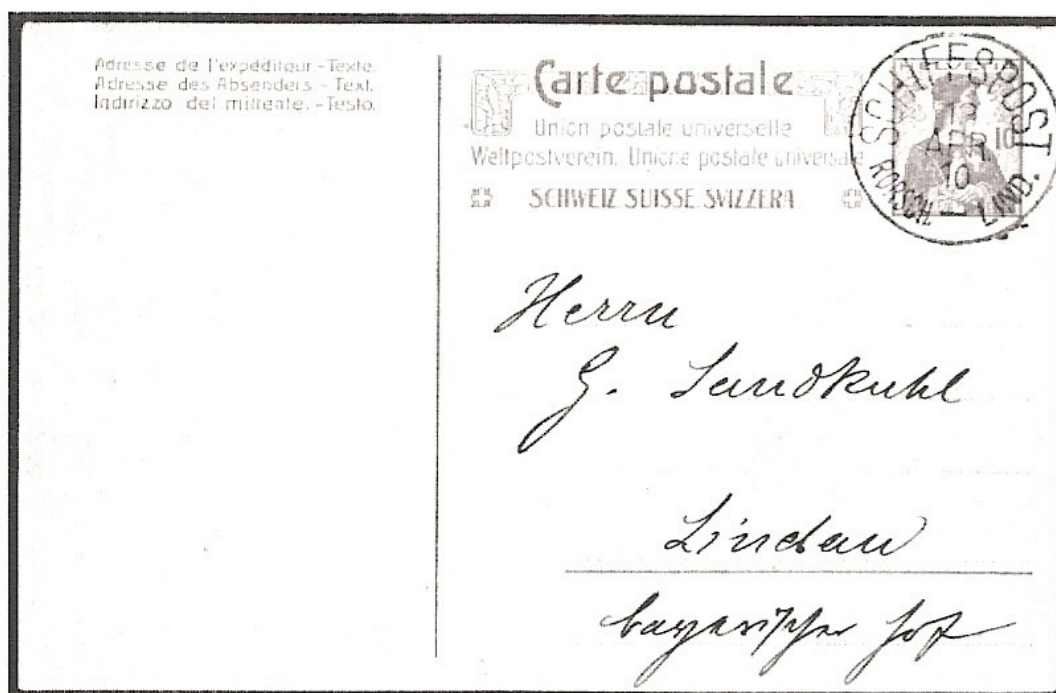 Adresse de l'expéditeur - Texte.
Adresse des Absenders. - Text.
Indirizzo del mittente. - Testo.
Carte postale
Union postale universelle
Weltpostverein. Unione postale universale
SCHWEIZ SUISSE SVIZZERA
SCHIFFSPOST
APR.
10
RORSCH. — LIND.
10
Herrn
G. Sandkuhl
Lindau
bayerischer Hof